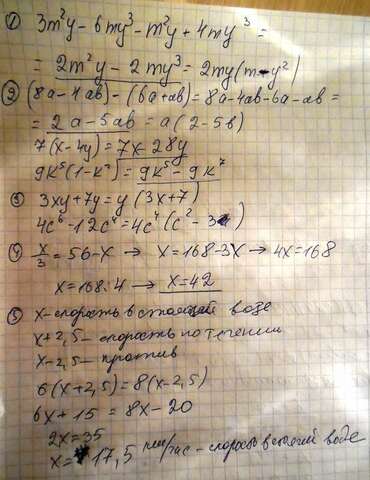 ① 3m²y - 6my³ - m²y + 4my³ =
= 2m²y - 2my³ = 2my(m - y²)
② (8a - 4ab) - (6a + ab) = 8a - 4ab - 6a - ab =
= 2a - 5ab = a(2 - 5b)
7(x - 4y) = 7x - 28y
9k⁵(1 - k²) = 9k⁵ - 9k⁷
③ 3xy + 7y = y(3x + 7)
4c⁶ - 12c⁴ = 4c⁴(c² - 3)
④ x/3 = 56 - x → x = 168 - 3x → 4x = 168
x = 168:4 → x = 42
⑤ x - скорость в стоячей воде
x + 2,5 - скорость по течению
x - 2,5 - против
6(x + 2,5) = 8(x - 2,5)
6x + 15 = 8x - 20
2x = 35
x = 17,5 км/час - скорость в стоячей воде